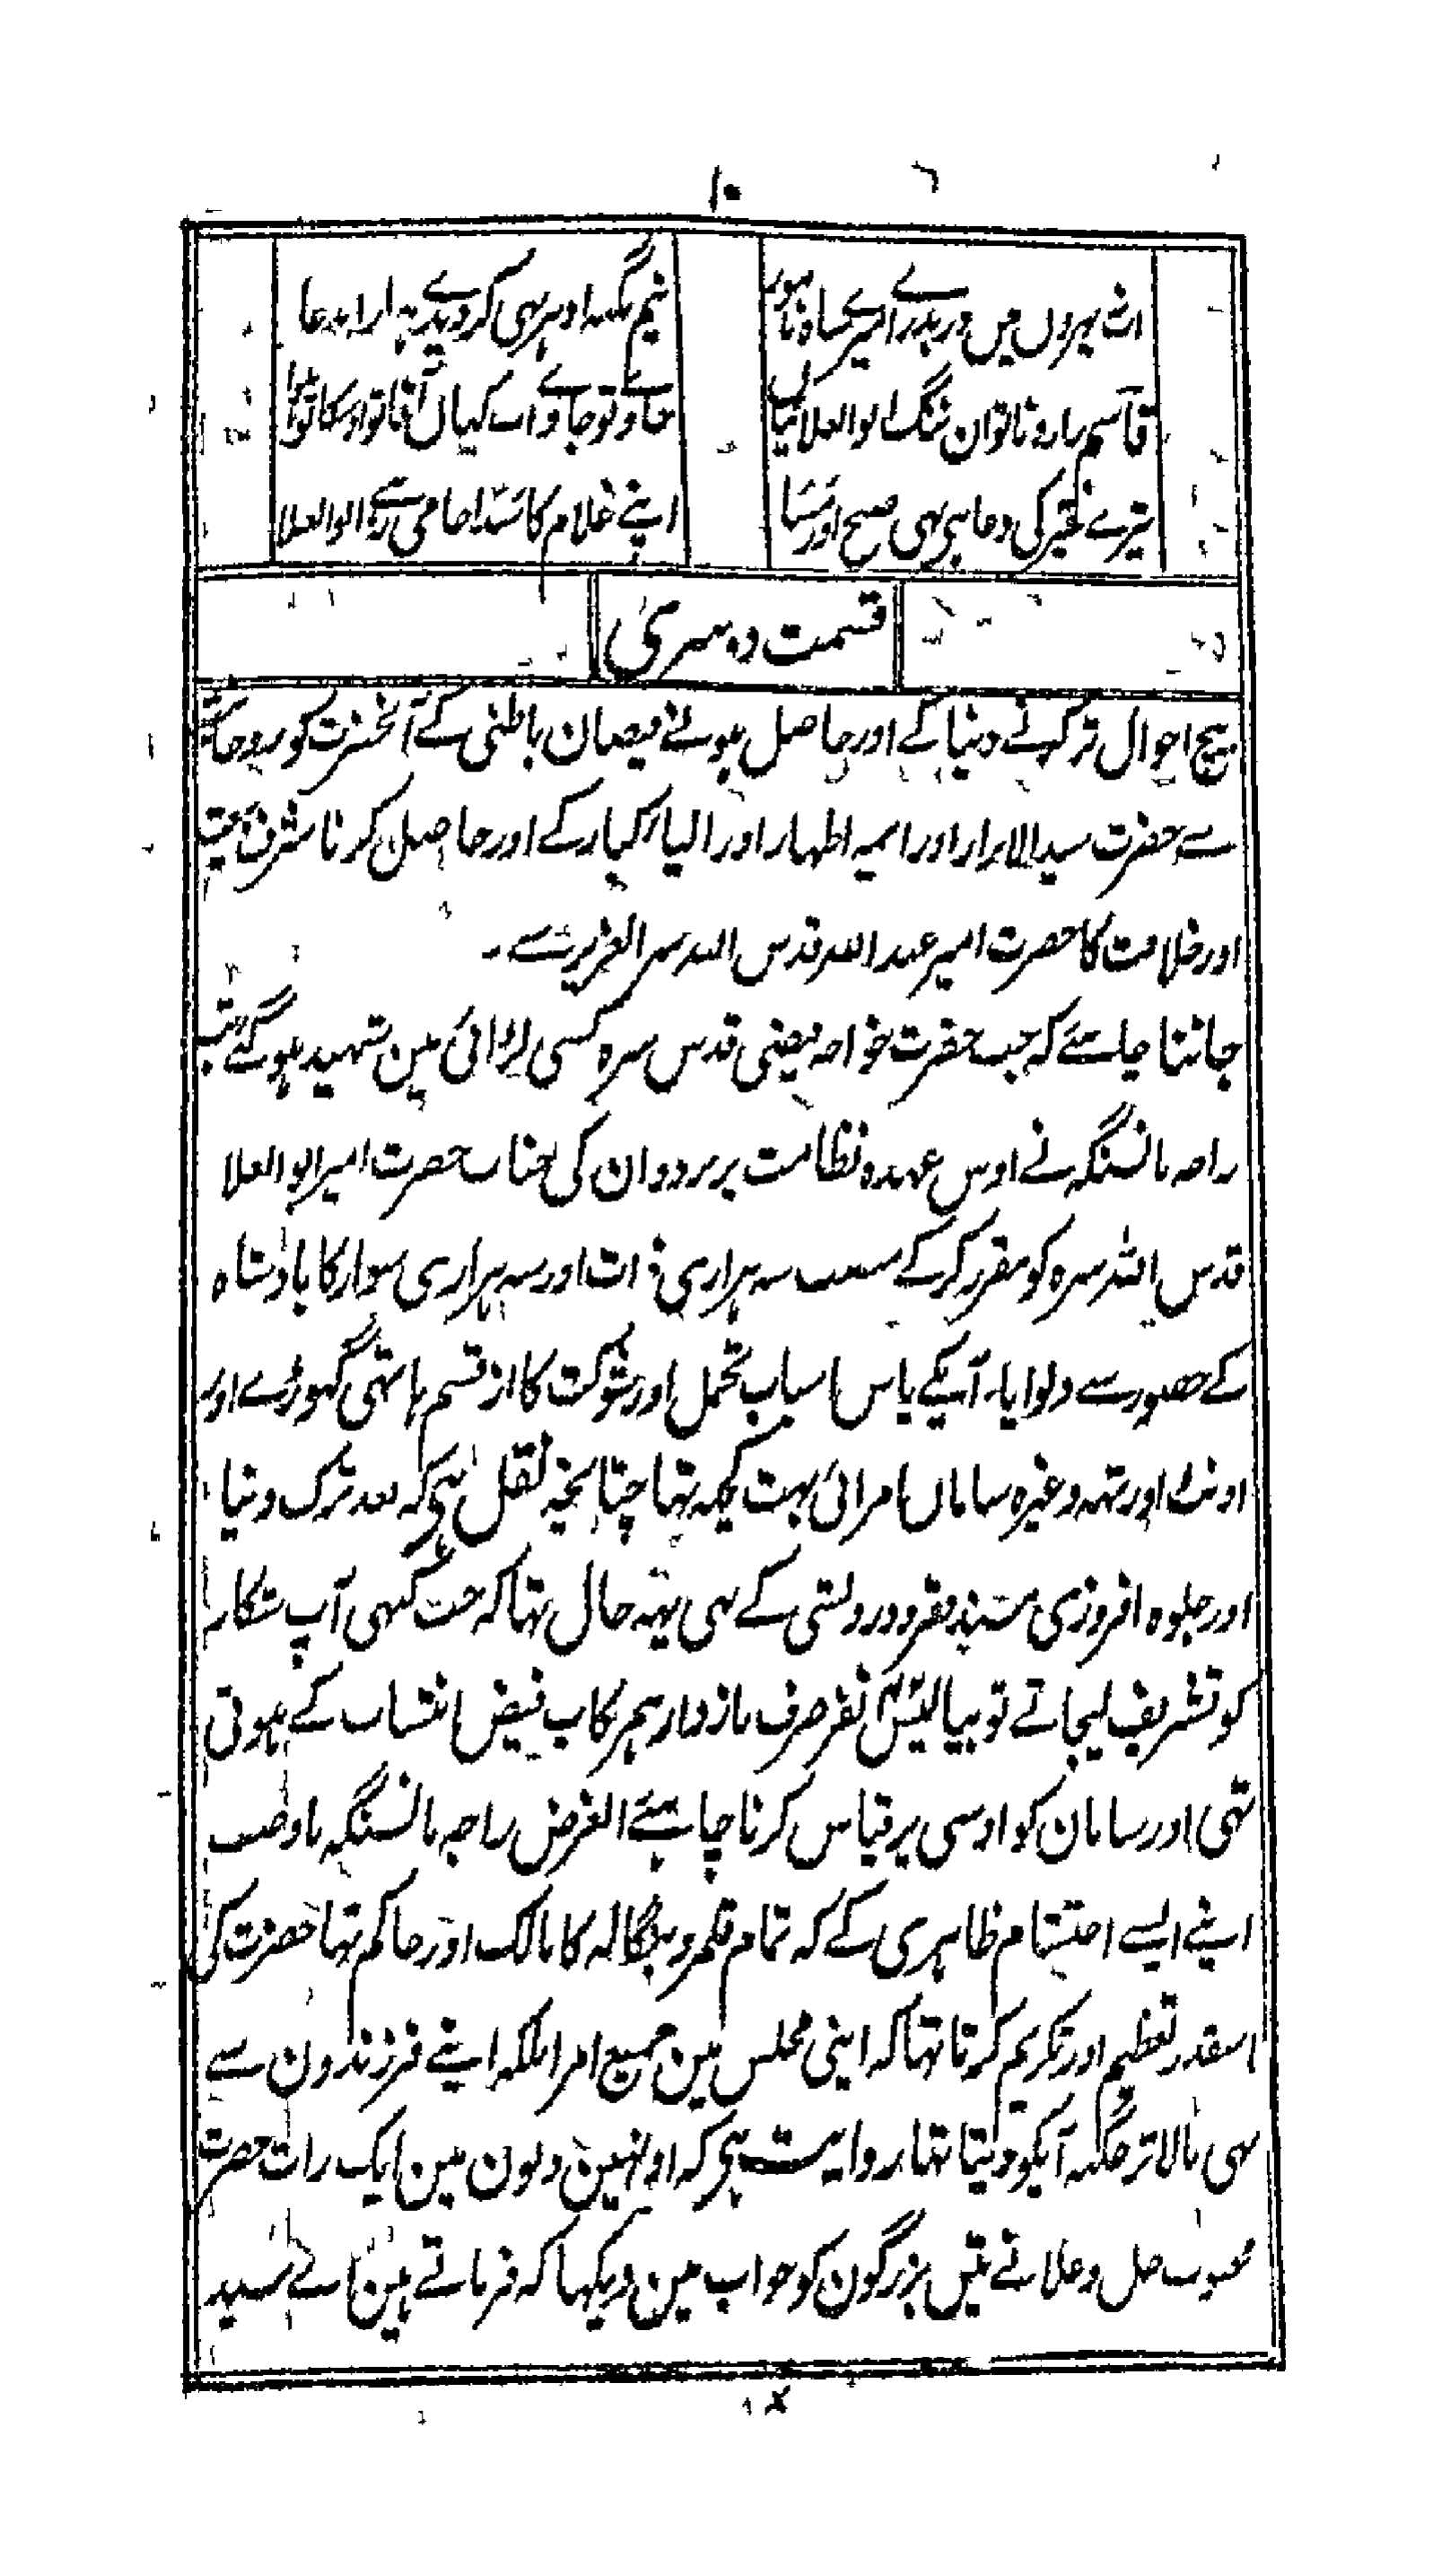 ۱۰
اب پہروں میں در بدر اے میرے شاہ نامور
نیم نگہ ادہر بہی کر دیدے ہمارا مدعا
قاسم زار و ناتواں ننگ ابوالعلائیاں
جاوے تو جاوے اب کہاں آقا تو اوسکا تو
تیرے فقیر کی دعا ہی یہی صبح اور مسا
اپنے غلام کا سدا حامی رہے ابوالعلا
قسمت دوسری
بیچ احوال ترک کرنے دنیا کے اور حاصل ہونے فیضان باطنی کے آنحضرت کو روحانیت
سے حضرت سید الابرار اور ائمہ اطہار اور اولیاء کبار کے اور حاصل کرنا شرف بیعت
اور خلافت کا حضرت امیر عبد اللہ قدس اللہ سرہ العزیز سے ۔
جاننا چاہئے کہ جب حضرت خواجہ فیضی قدس سرہ کسی لڑائی مین شہید ہو گئے تب
راجہ مانسنگہ نے اوس عہدہ نظامت پر بردوان کی جناب حضرت امیر ابوالعلا
قدس اللہ سرہ کو مقرر کر کے منصب سہ ہزاری ذات اور سہ ہزاری سوار کا بادشاہ
کے حضور سے دلوایا۔ آپکے پاس اسباب تحمل اور شوکت کا از قسم ہاتہی گہوڑے اور
اونٹ اور تہہ وغیرہ سامان امرائی بہت کچہہ تہا چنانچہ نقل ہی کہ بعد ترک دنیا
اور جلوہ افروزی مسند فقر و درویشی کے بہی یہہ حال تہا کہ جب کبہی آپ شکار
کو تشریف لیجاتے تو بیالیس نفر صرف بازدار ہمرکاب فیض انتساب کے ہوتی
تہی اور سامان کو اوسی پر قیاس کرنا چاہئے الغرض راجہ مانسنگہ باوصف
اپنے ایسے احتشام ظاہری کے کہ تمام قلمرو بنگالہ کا مالک اور حاکم تہا حضرت کی
اسقدر تعظیم اور تکریم کرتا تہا کہ اپنی مجلس مین جمیع امرا بلکہ اپنے فرزندون سے
بہی بالاتر جگہہ آپکو دیتا تہا روایت ہی کہ اونہین دنون مین ایک رات حضرت
محبوب جل و علا نے تین بزرگون کو خواب مین دیکہا کہ فرماتے ہین اے سید